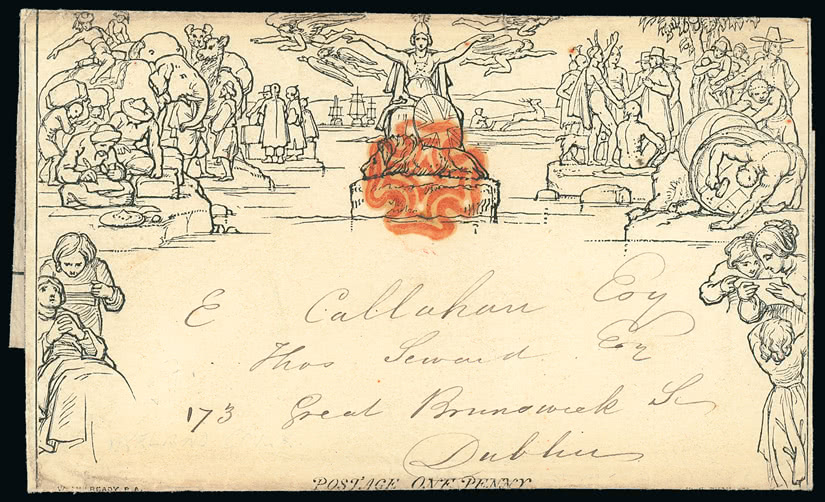 E Callahan Esq
Thos Seward Esq
173 Great Brunswick St
Dublin
POSTAGE ONE PENNY.
MULREADY R.A.